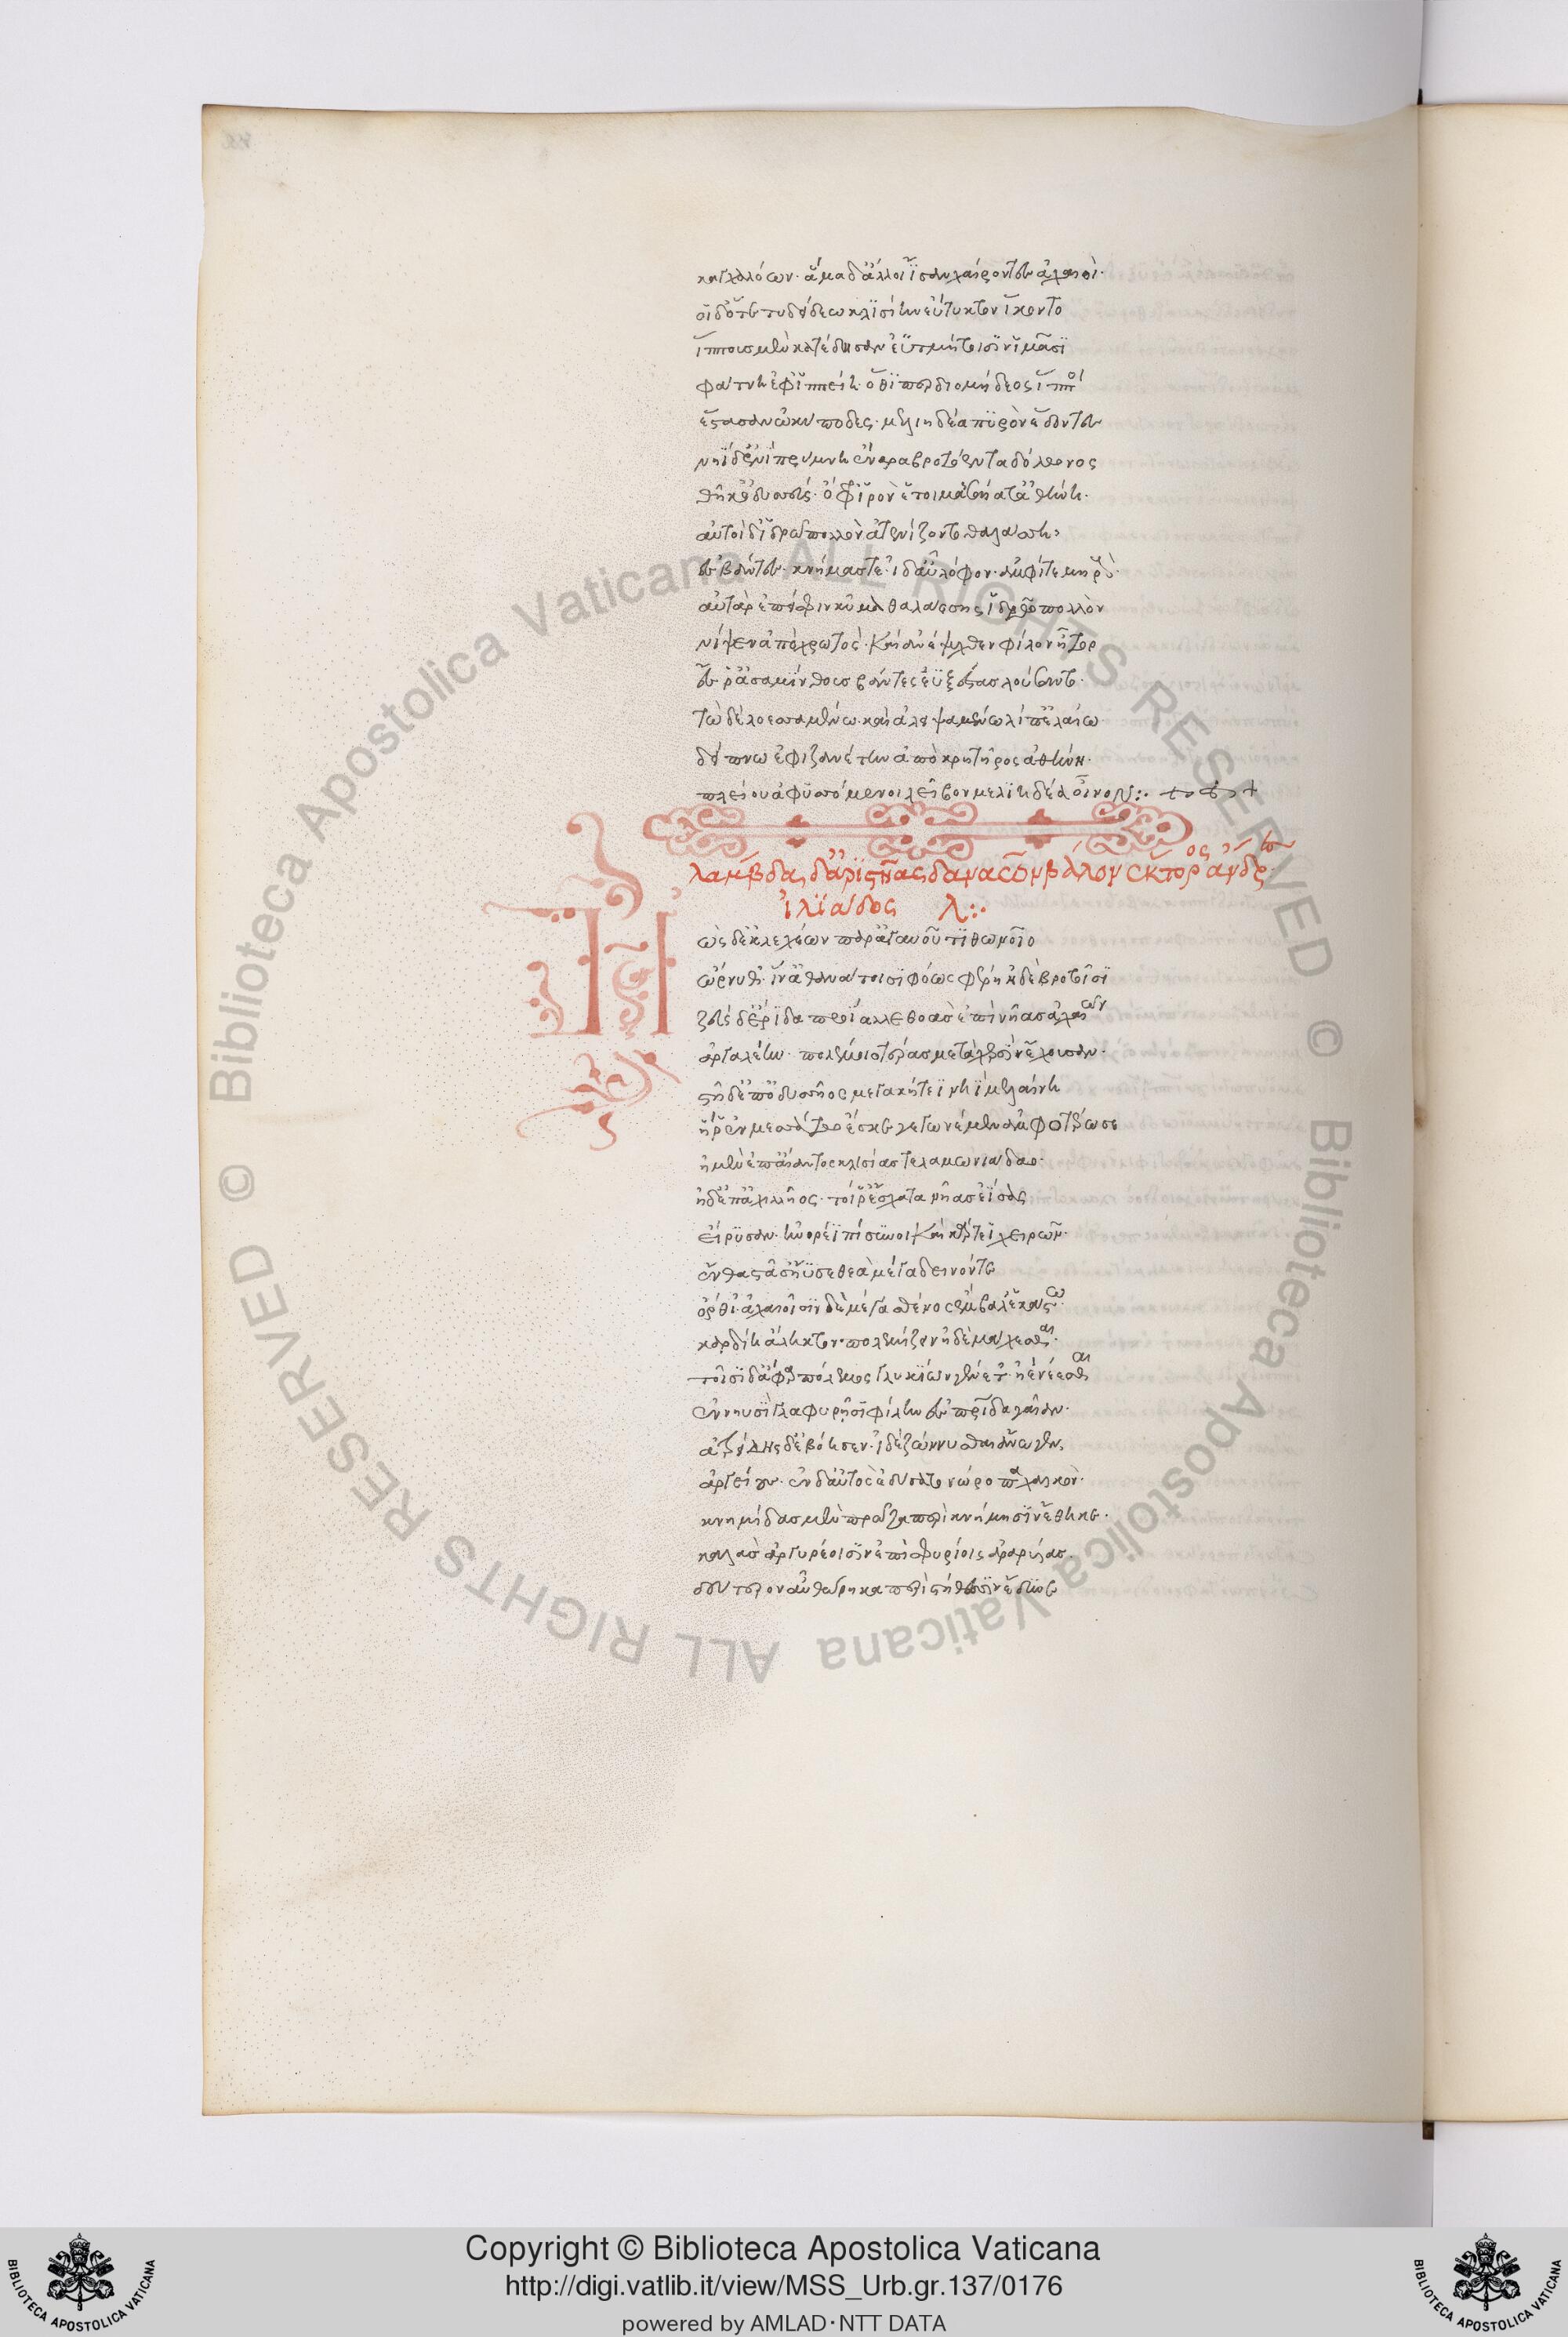 καγχαλόων· ἅμα δ' ἄλλοι ἴσαν χαίροντες ἀχαιοί·
οἱ δ' ὅτε τυδείδεω κλισίην εὔτυκτον ἵκοντο
ἵππους μὲν κατέδησαν ἐϋτμήτοισιν ἱμᾶσι
φάτνη ἐφ' ἱππείη· ὅθι περ διομήδεος ἵπποι
ἕστασαν ὠκύποδες· μελιηδέα πυρὸν ἔδοντες
νηῒ δ' ἐνὶ πρύμνη ἔναρα βροτόεντα δόλωνος
θῆκ' ὀδυσεύς· ὄφρ' ἱρὸν ἑτοιμάσαιντ' ἀθήνη·
αὐτοὶ δ' ἱδρῶ πολλὸν ἀπενίζοντο θαλάσση
ἐσβάντες· κνήμας τε ἰδὲ λόφον· ἀμφί τε μηρούς·
αὐτὰρ ἐπεί σφιν κῦμα θαλάσσης ἱδρῶ πολλὸν
νίψεν ἀπὸ χρωτὸς· καὶ ἀνέψυχθεν φίλον ἦτορ
ἔς ῥ' ἀσαμίνθους βάντες ἐϋξέστας λούσαντο·
τὼ δὲ λοεσσαμένω· καὶ ἀλειψαμένω λίπ' ἐλαίω
δείπνω ἐφιζανέτην ἀπὸ κρητῆρος ἀθήνη·
πλείου ἀφυσσόμενοι λεῖβον μελιηδέα οἶνον:·
λάμβδα, δ' ἀριστῆας δαναῶν βάλον ἕκτορος ἄνδρες
ἰλιάδος λ:·
Ἠὼς δ' ἐκ λεχέων παρ' ἀγαυοῦ τιθωνοῖο
ὤρνυθ'· ἵν' ἀθανάτοισι φόως φέροι ἠδὲ βροτοῖσι
ζεὺς δ' ἔριδα προΐαλλε θοὰς ἐπὶ νῆας ἀχαιῶν
ἀργαλέην· πολέμοιο τέρας μετὰ χερσὶν ἔχουσαν·
στῆ δ' ἐπ' ὀδυσσῆος μεγακήτεϊ νηῒ μελαίνη
ἥ ῥ' ἐν μεσσάτω ἔσκε γεγωνέμεν ἀμφοτέρωσε
ἠμὲν ἐπ' αἴαντος κλισίας τελαμωνιάδαο·
ἠδ' ἐπ' ἀχιλλῆος· τοί ῥ' ἔσχατα νῆας ἐΐσας
εἴρυσαν· ἠνορέη πίσυνοι καὶ κάρτεϊ χειρῶν·
ἔνθα στᾶσ' ἤϋσε θεὰ μέγα δεινόν τε
ὄρθι'· ἀχαιοῖσιν δὲ μέγα σθένος ἔμβαλ' ἑκάστω·
καρδίη ἄλληκτον· πολεμίζειν ἠδὲ μάχεσθαι·
τοῖσι δ' ἄφαρ πόλεμος γλυκίων γένετ'· ἠὲ νέεσθαι
ἐν νηυσὶ γλαφυρῆσι φίλην ἐς πατρίδα γαῖαν·
ἀτρείδης δ' ἐβόησεν· ἰδὲ ζώννυσθαι ἄνωγεν,
ἀργείους· ἐν δ' αὐτὸς ἐδύσατο νώροπα χαλκόν·
κνημῖδας μὲν πρῶτα περὶ κνήμησιν ἔθηκε·
καλὰς ἀργυρέοισιν ἐπισφυρίοις ἀραρυίας·
δεύτερον αὖ θώρηκα περὶ στήθεσσιν ἔδυνε
Copyright © Biblioteca Apostolica Vaticana
http://digi.vatlib.it/view/MSS_Urb.gr.137/0176
powered by AMLAD·NTT DATA